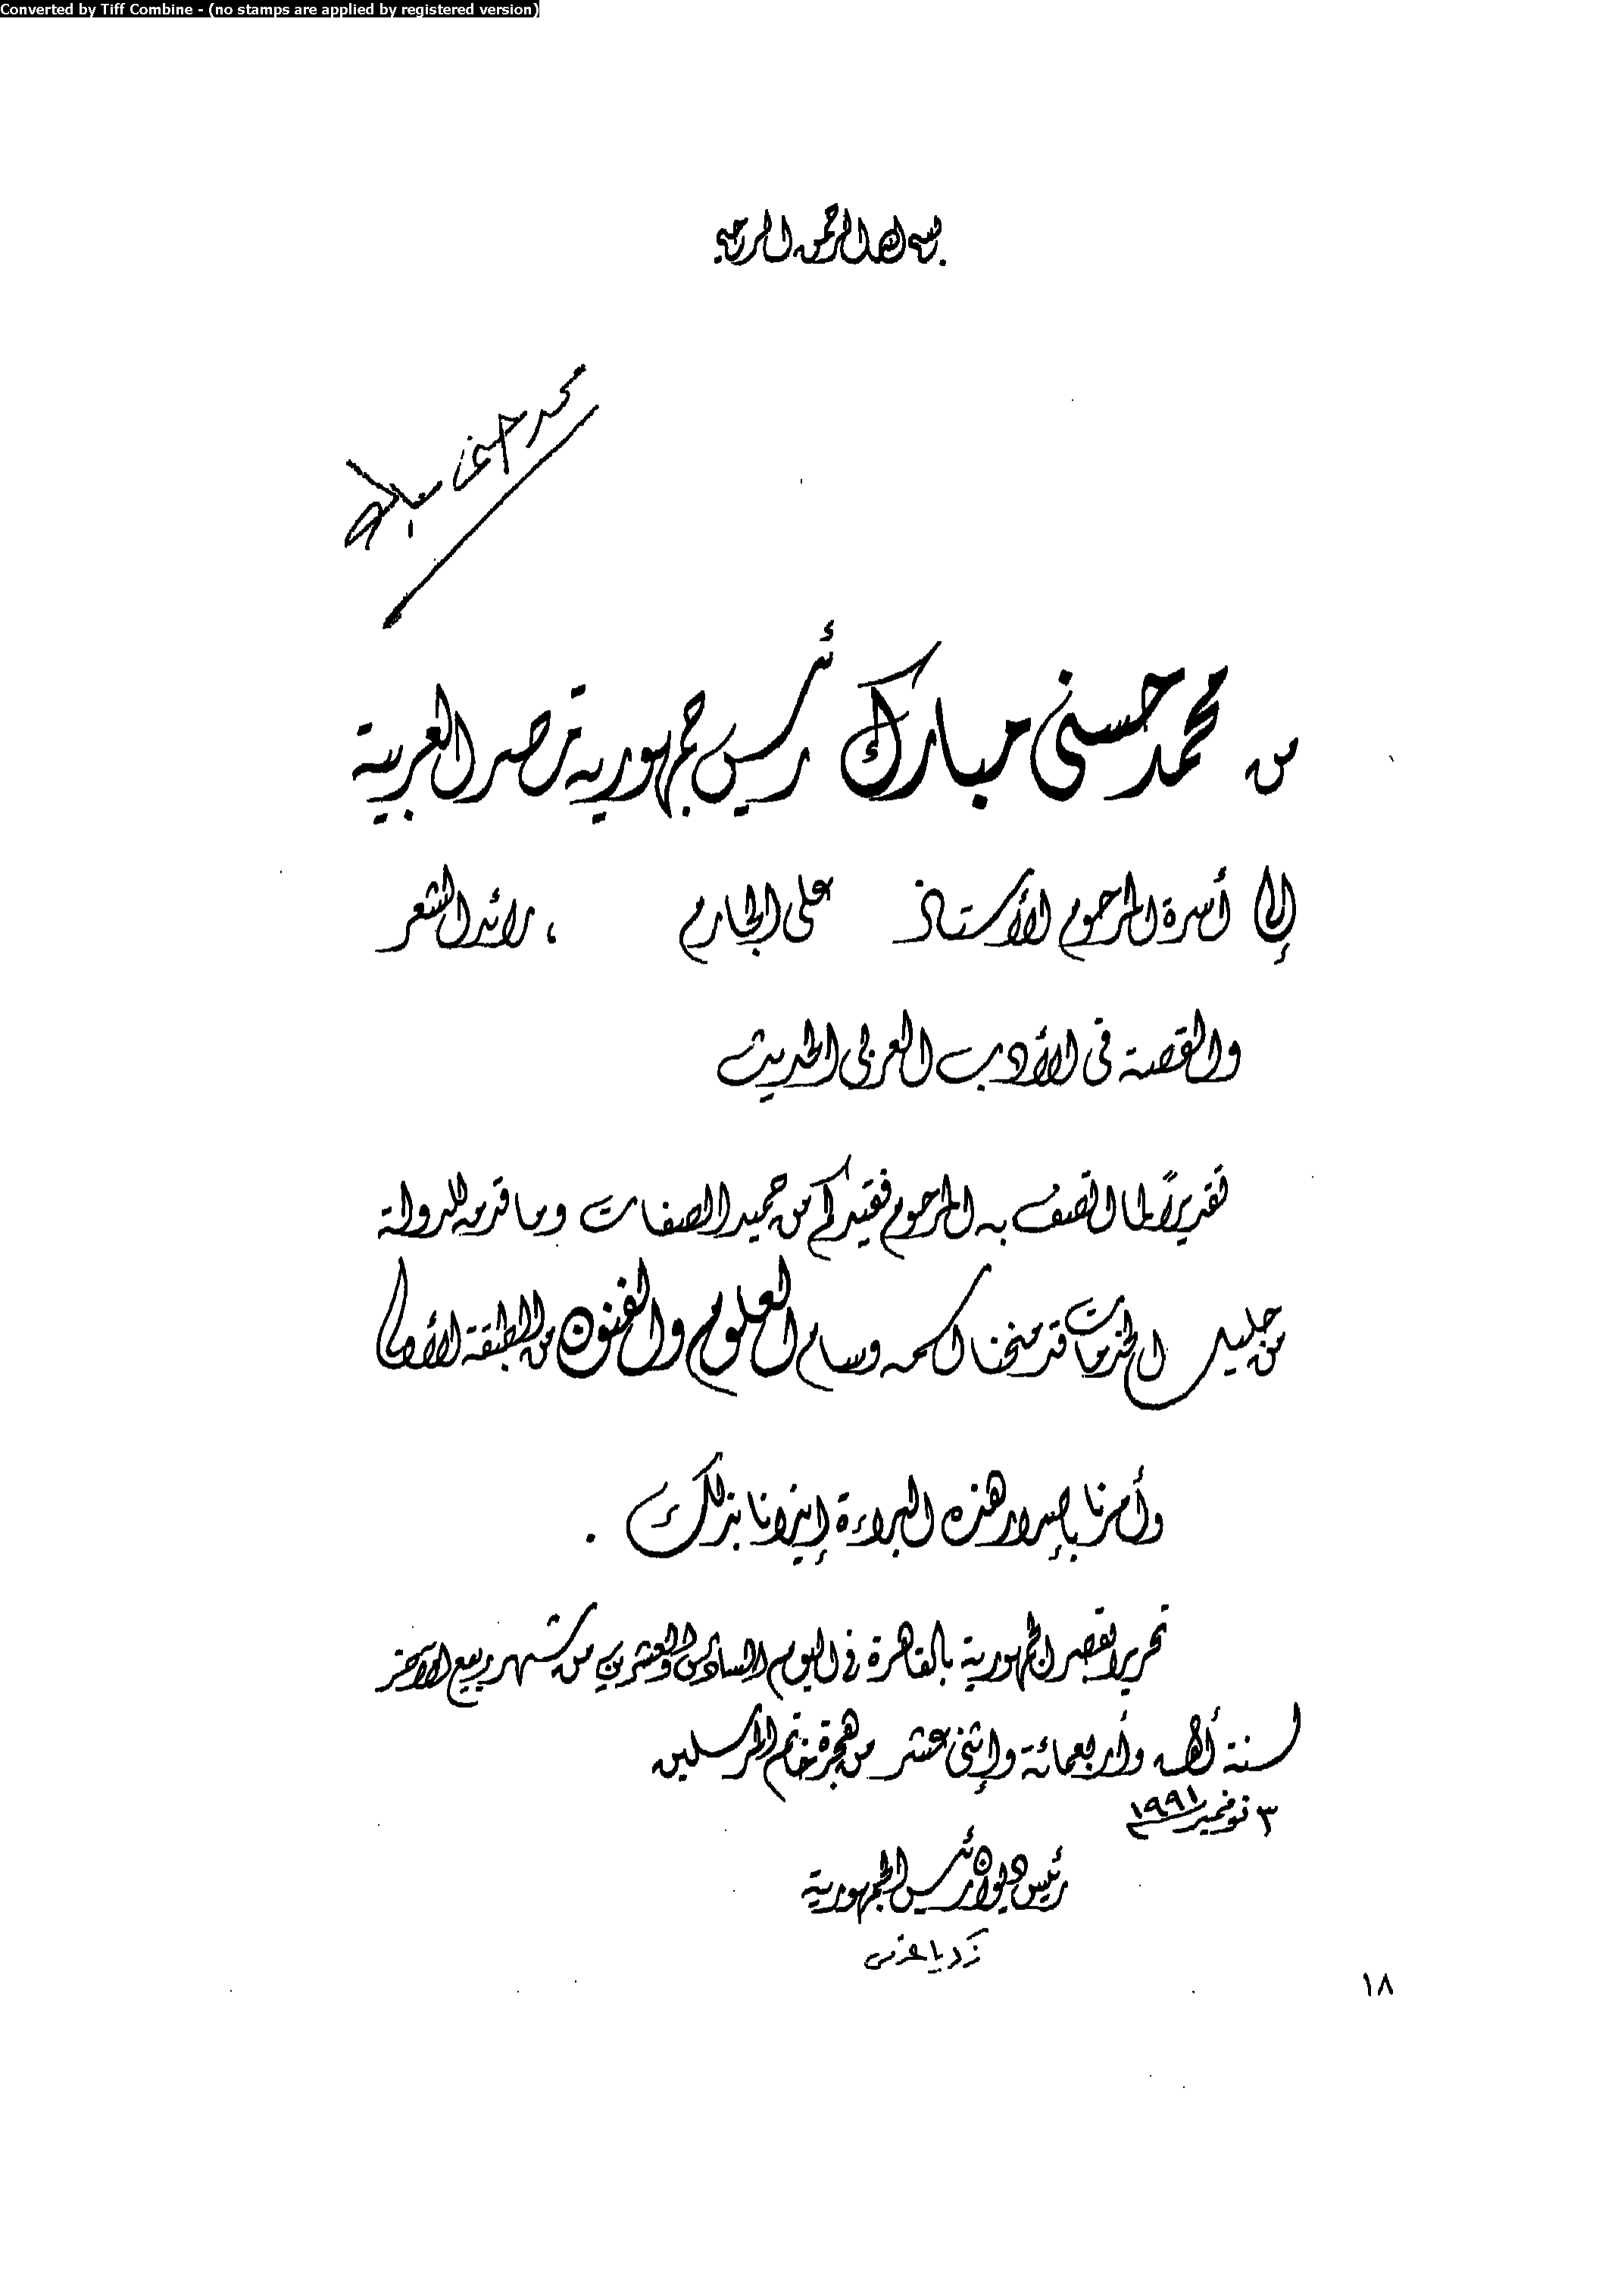 Converted by Tiff Combine - (no stamps are applied by registered version)
بسم الله الرحمن الرحيم
محمد حسنى مبارك
من محمد حسنى مبارك رئيس جمهورية مصر العربية
إلى أسرة المرحوم الأستاذ على الجارم ، رائد الشعر
والقصة فى الأدب العربى الحديث
تقديرًا لما اتصف به المرحوم فقيدكم من حميد الصفات وما قدمه للدولة
من جليل الخدمات قد منحنا اسمه وسام العلوم والفنون من الطبقة الأولى
وأمرنا بإصدار هذه البراءة إيذانا بذلك .
تحريرا بقصر الجمهورية بالقاهرة فى اليوم السادس والعشرين من شهر ربيع الآخر
لسنة ألف وأربعمائة وإثنى عشر من هجرة خاتم المرسلين
٣ نوفمبر ١٩٩١
رئيس ديوان رئيس الجمهورية
زكريا عزمى
١٨